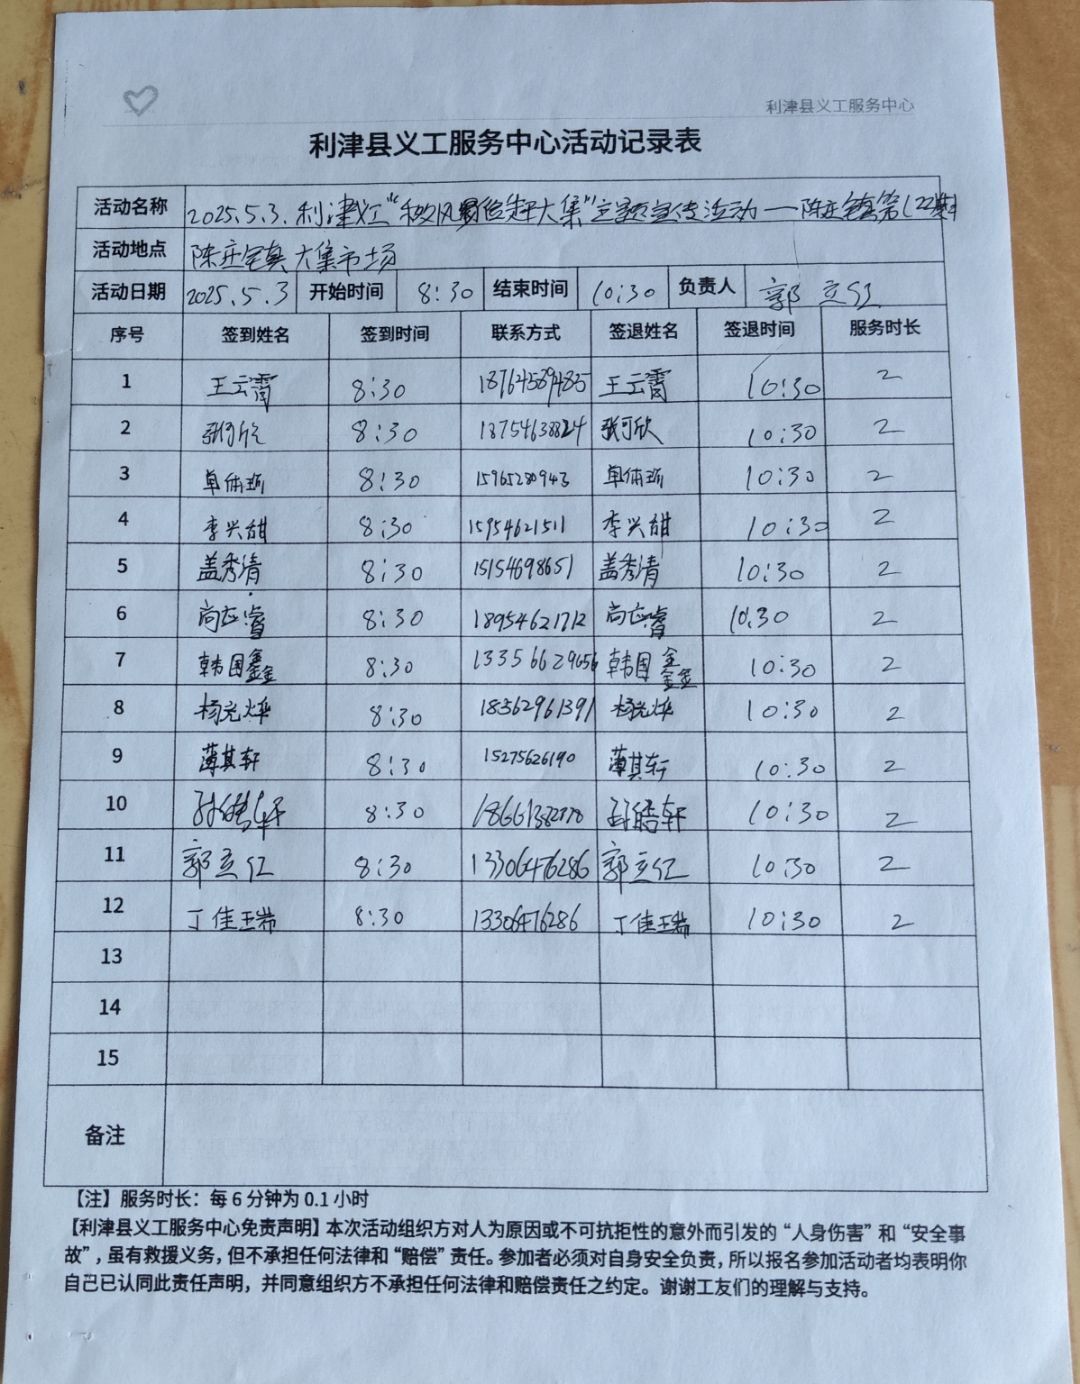 利津县义工服务中心
利津县义工服务中心活动记录表
活动名称 2025.5.3.利津义工"移风易俗赶大集"主题宣传活动—陈庄镇第(22期)
活动地点 陈庄镇大集市场
活动日期 2025.5.3 开始时间 8:30 结束时间 10:30 负责人 郭立红
序号 签到姓名 签到时间 联系方式 签退姓名 签退时间 服务时长
1 王云霄 8:30 18764589485 王云霄 10:30 2
2 张可欣 8:30 18754638824 张可欣 10:30 2
3 8:30 15965280943 10:30 2
4 李兴甜 8:30 15954621511 李兴甜 10:30 2
5 盖秀清 8:30 15154698651 盖秀清 10:30 2
6 尚应睿 8:30 18954621712 尚应睿 10:30 2
7 韩国鑫 8:30 13356629656 韩国鑫 10:30 2
8 杨光焕 8:30 18562961391 杨光焕 10:30 2
9 薄其轩 8:30 15275626190 薄其轩 10:30 2
10 孙皓轩 8:30 孙皓轩 10:30 2
11 郭立红 8:30 13306476286 郭立红 10:30 2
12 丁佳 8:30 13306476286 丁佳 10:30 2
13
14
15
备注
【注】服务时长：每 6 分钟为 0.1 小时
【利津县义工服务中心免责声明】本次活动组织方对人为原因或不可抗拒性的意外而引发的“人身伤害”和“安全事
故”，虽有救援义务，但不承担任何法律和“赔偿”责任。参加者必须对自身安全负责，所以报名参加活动者均表明你
自己已认同此责任声明，并同意组织方不承担任何法律和赔偿责任之约定。谢谢工友们的理解与支持。